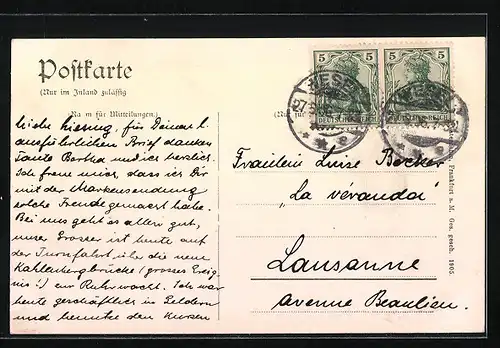 Postkarte
(Nur im Inland zulässig
(Raum für Mitteilungen.)
5 5 5 5
DEUTSCHES REICH DEUTSCHES REICH
WESEL WESEL
für Deinen l.
ausführlichen Brief danken
Tante Bertha und ich herzlich.
Ich freue mich, dass ich Dir
mit der Markensendung
solche Freude gemacht habe.
Bei uns geht es allen gut,
unser Grosser ist heute auf
der Turnfahrt über die neue
Kahlenbergbrücke (grosses Ereig-
nis!) Ich war
heute geschäftlich in Geldern
und benutze den kurzen
Fräulein Luise Becker
"La véranda"
Lausanne
avenue Beaulieu.
Frankfurt a. M. Ges. gesch. 1905.